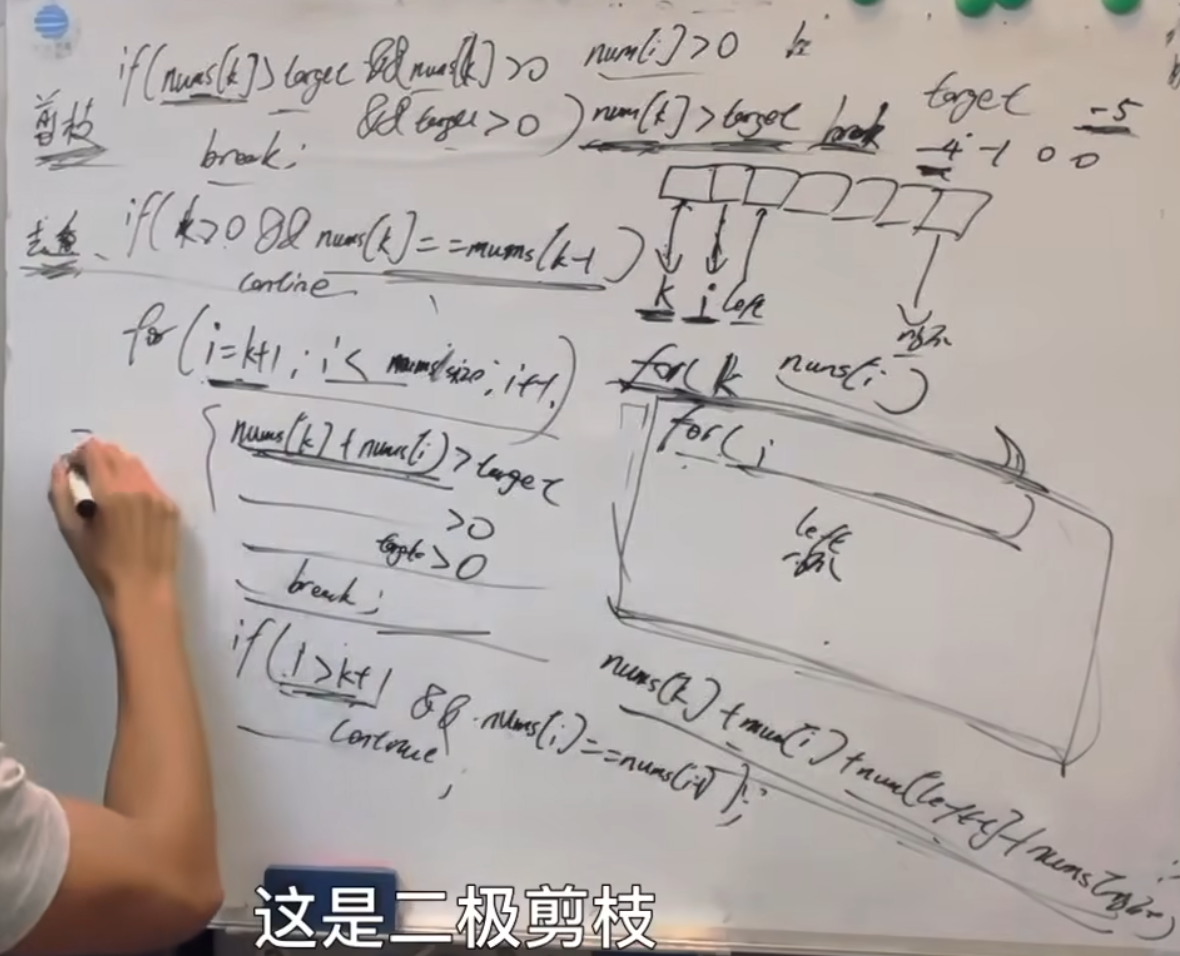 if(nums[k]>target && nums[k]>0
&& target>0)
break;
剪枝
num[i]>0 k
num[k]>target break
target -5
-4 -1 0 0
去重、if(k>0 && nums[k]==nums[k-1)
contine
k i left
right
for(i=k+1; i< nums.size; i++)
{ nums[k]+nums[i]>target
>0
target>0
break;
if(i>k+1 && nums[i]==nums[i-1]);
Contnue;
for(k nums[i)
for(i )
left
right
nums[k]+num[i]+num[left]+nums[right]
这是二极剪枝